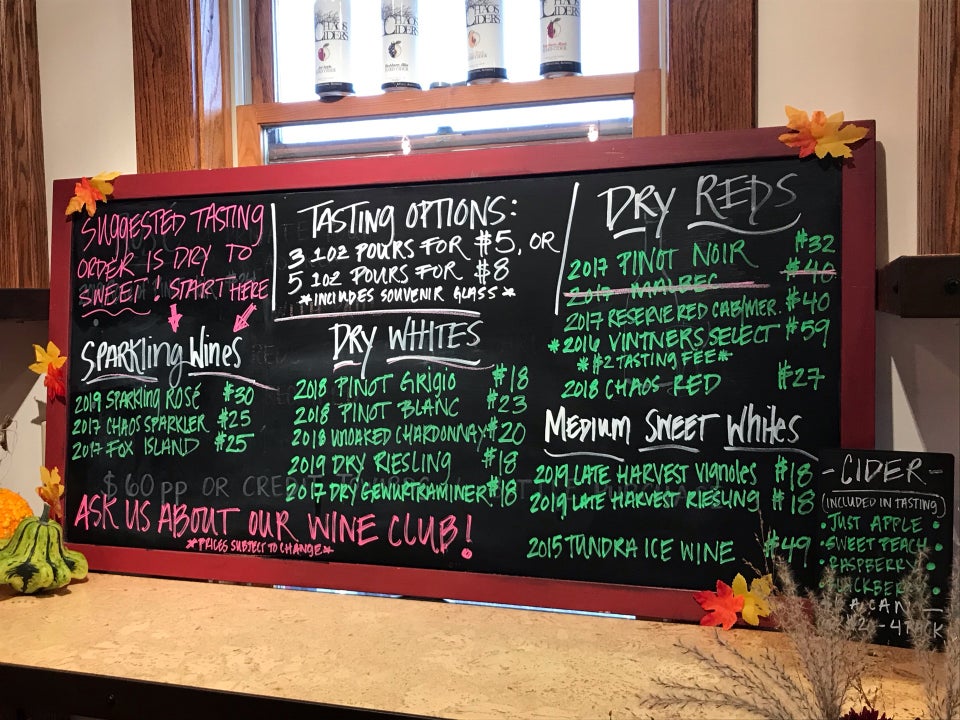 CHAOS CIDERS
CHAOS CIDERS
CHAOS CIDERS
CHAOS CIDERS
SUGGESTED TASTING
ORDER IS DRY TO
SWEET! START HERE
SPARKLING WINES
2019 SPARKLING ROSÉ $30
2017 CHAOS SPARKLER $25
2017 FOX ISLAND $25
TASTING OPTIONS:
3 1OZ POURS FOR $5, OR
5 1OZ POURS FOR $8
*INCLUDES SOUVENIR GLASS*
DRY WHITES
2018 PINOT GRIGIO $18
2018 PINOT BLANC $23
2018 UNOAKED CHARDONNAY $20
2019 DRY RIESLING $18
2017 DRY GEWURTRAMINER $18
$60 PP OR CREDIT
ASK US ABOUT OUR WINE CLUB!
*PRICES SUBJECT TO CHANGE*
DRY REDS
2017 PINOT NOIR $32
2017 MALBEC $40
2017 RESERVE RED CAB/MER. $40
*2016 VINTNERS SELECT $59
*$2 TASTING FEE*
2018 CHAOS RED $27
MEDIUM SWEET WHITES
2019 LATE HARVEST VIGNOLES $18
2019 LATE HARVEST RIESLING $18
2015 TUNDRA ICE WINE $49
-CIDER-
(INCLUDED IN TASTING)
• JUST APPLE •
• SWEET PEACH •
• RASPBERRY •
• BLACKBERRY •
A CAN
-4 PACK